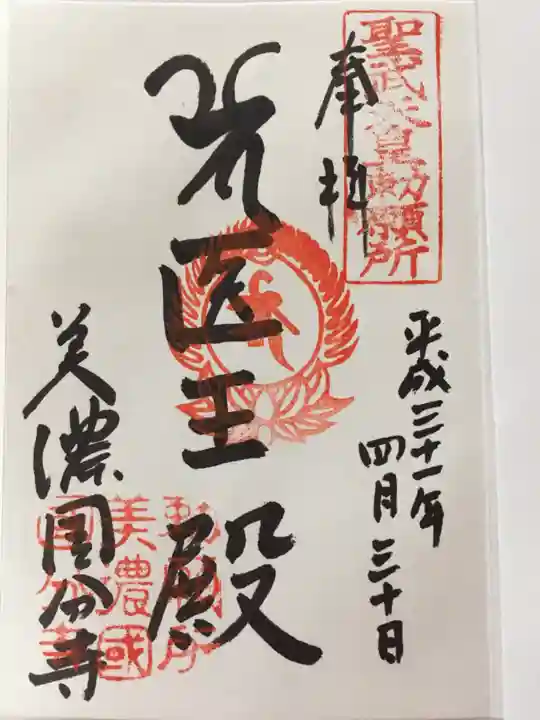 聖武天皇勅願所
奉拝
平成三十一年
四月三十日
医王殿
美濃国分寺
勅願所
美濃國
国分寺